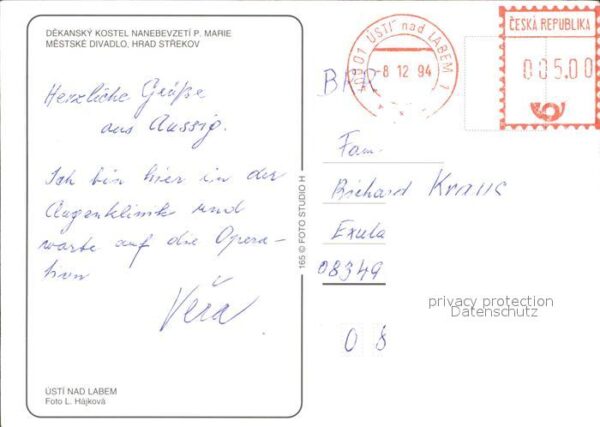 DĚKANSKÝ KOSTEL NANEBEVZETÍ P. MARIE
MĚSTSKÉ DIVADLO, HRAD STŘEKOV
Herzliche Grüße
aus Aussig.
Ich bin hier in der
Augenklinik und
warte auf die Opera-
tion
Věra
ÚSTÍ NAD LABEM
Foto L. Hájková
165 © FOTO STUDIO H
400 01 ÚSTÍ nad LABEM 1
-8 12 94
ČESKÁ REPUBLIKA
005.00
BRD
Fam.
Richard Kraus
Exula
08349
08
privacy protection
Datenschutz